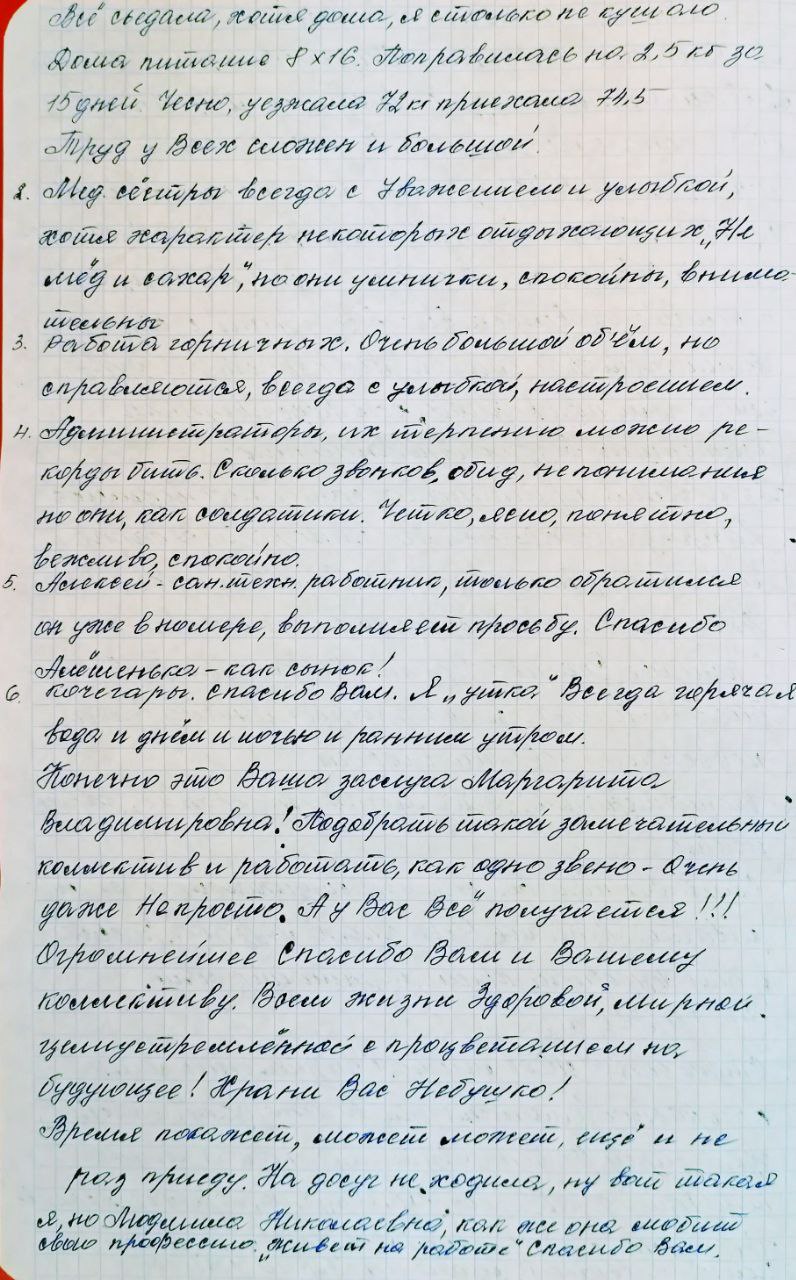 Всё съедала, хотя дома, я столько не кушаю.
Дома питание 8х16. Поправилась на 2,5 кг за
15 дней. Чесно, уезжала 72 кг приехала 74,5
Труд у Всех сложен и большой.
2. Мед. сёстры всегда с Уважением и улыбкой,
хотя характер некоторых отдыхающих „Не
мёд и сахар", но они умнички, спокойны, внима-
тельны
3. Работа горничных. Очень большой объём, но
справляются, всегда с улыбкой, настроением.
4. Администраторы, их терпению можно ре-
корды бить. Сколько звонков, обид, непонимания
но они, как солдатики. Четко, ясно, понятно,
вежливо, спокойно.
5. Алексей - сан.техн. работник, только обратился
он уже в номере, выполняет просьбу. Спасибо
Алёшенька - как сынок!
6. Кочегары. Спасибо Вам. Я „утка" Всегда горячая
вода и днём и ночью и ранним утром.
Конечно это Ваша заслуга Маргарита
Владимировна! Подобрать такой замечательный
коллектив и работать, как одно звено - Очень
даже Не просто. А у Вас Всё получается!!!
Огромнейшее Спасибо Вам и Вашему
коллективу. Всем жизни Здоровой, мирной
целиустремлённой с процветанием на
будующее! Храни Вас Небушко!
Время покажет, может может, ещё и не
раз приеду. На досуг не ходила, ну вот такая
я, но Людмила Николаевна, как же она любит
свою профессию. „живёт на работе" Спасибо Вам.